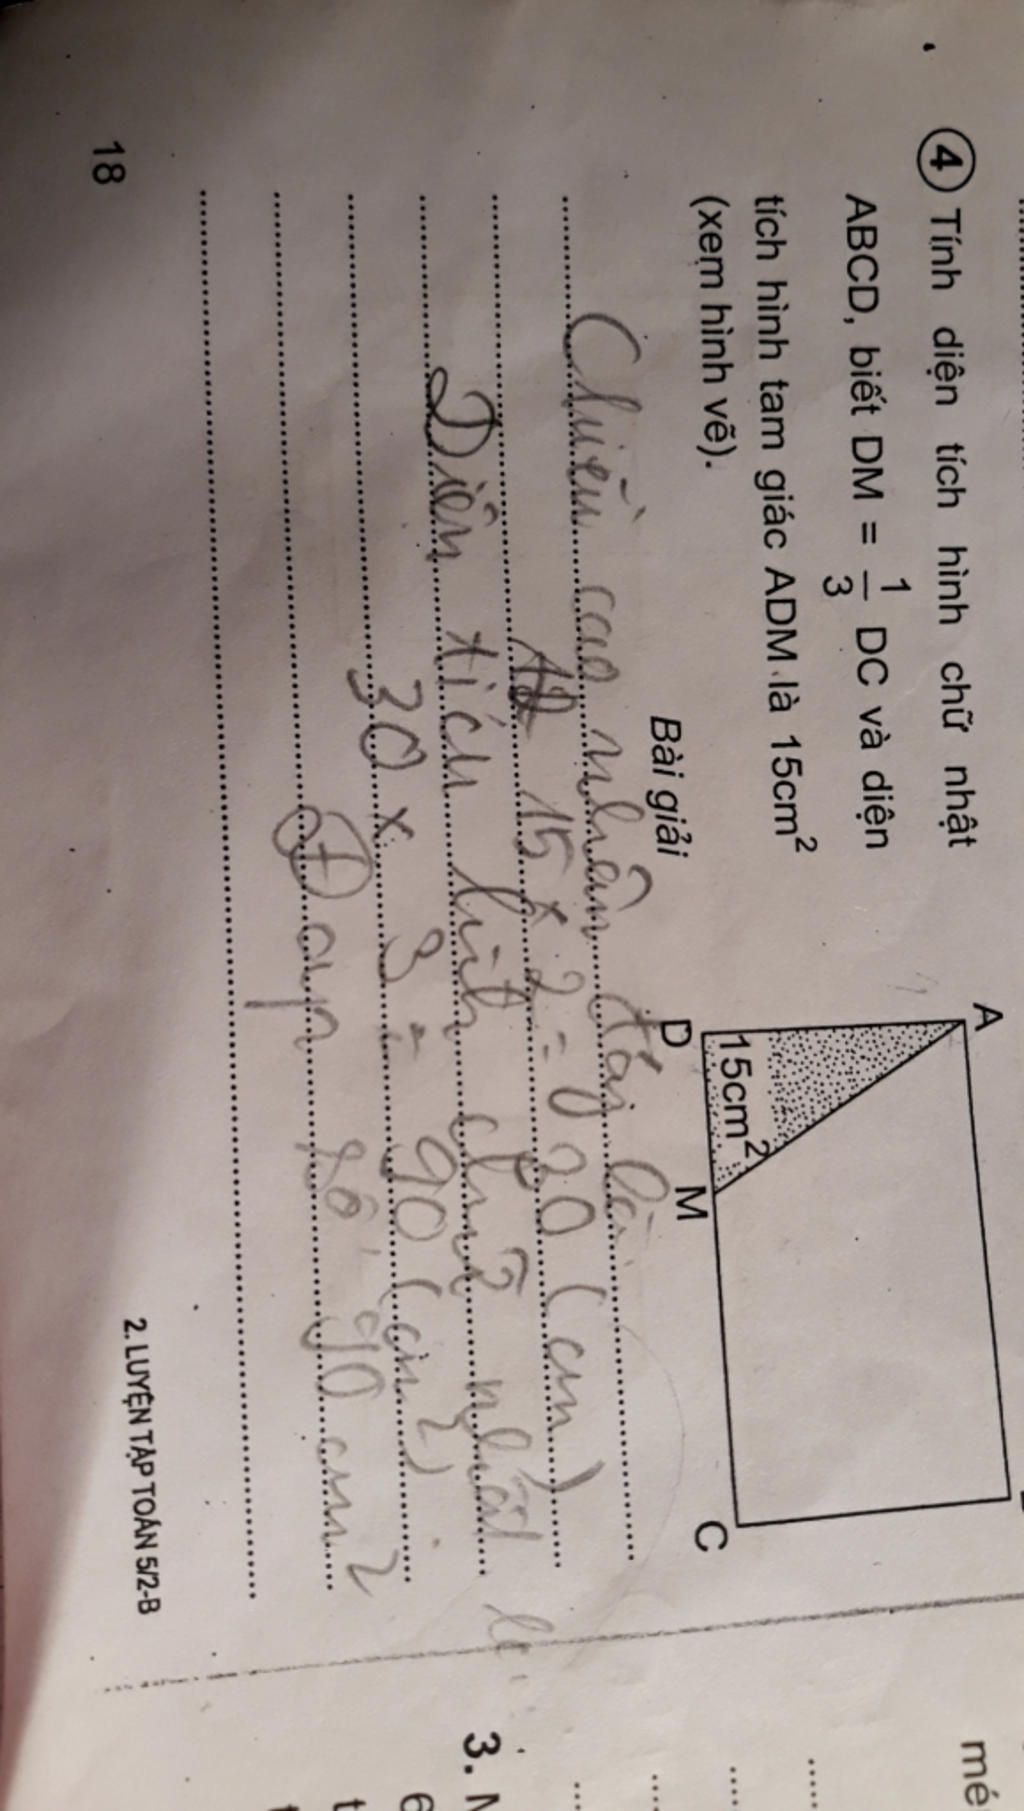 ④ Tính diện tích hình chữ nhật
ABCD, biết DM = 1/3 DC và diện
tích hình tam giác ADM là 15cm²
(xem hình vẽ).
A
15cm²
D
M
C
Bài giải
Chiều cao nhân đáy là
15 x 2 = 30 (cm)
Diện tích hình chữ nhật là
30 x 3 = 90 (cm2)
Đ áp số 90 cm2
18
2. LUYỆN TẬP TOÁN 5/2-B
mé
3.
6
t